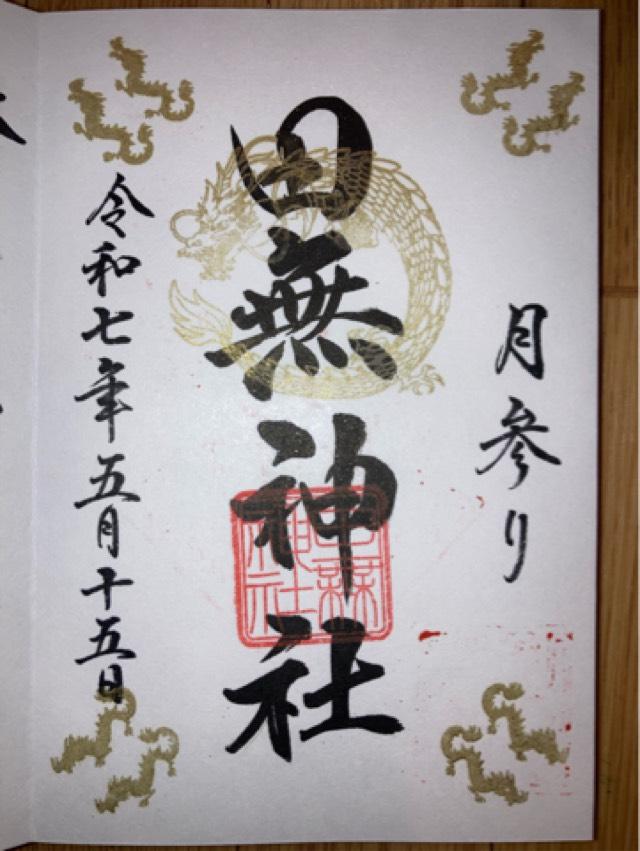 月参り
田無神社
田無神社
令和七年五月十五日